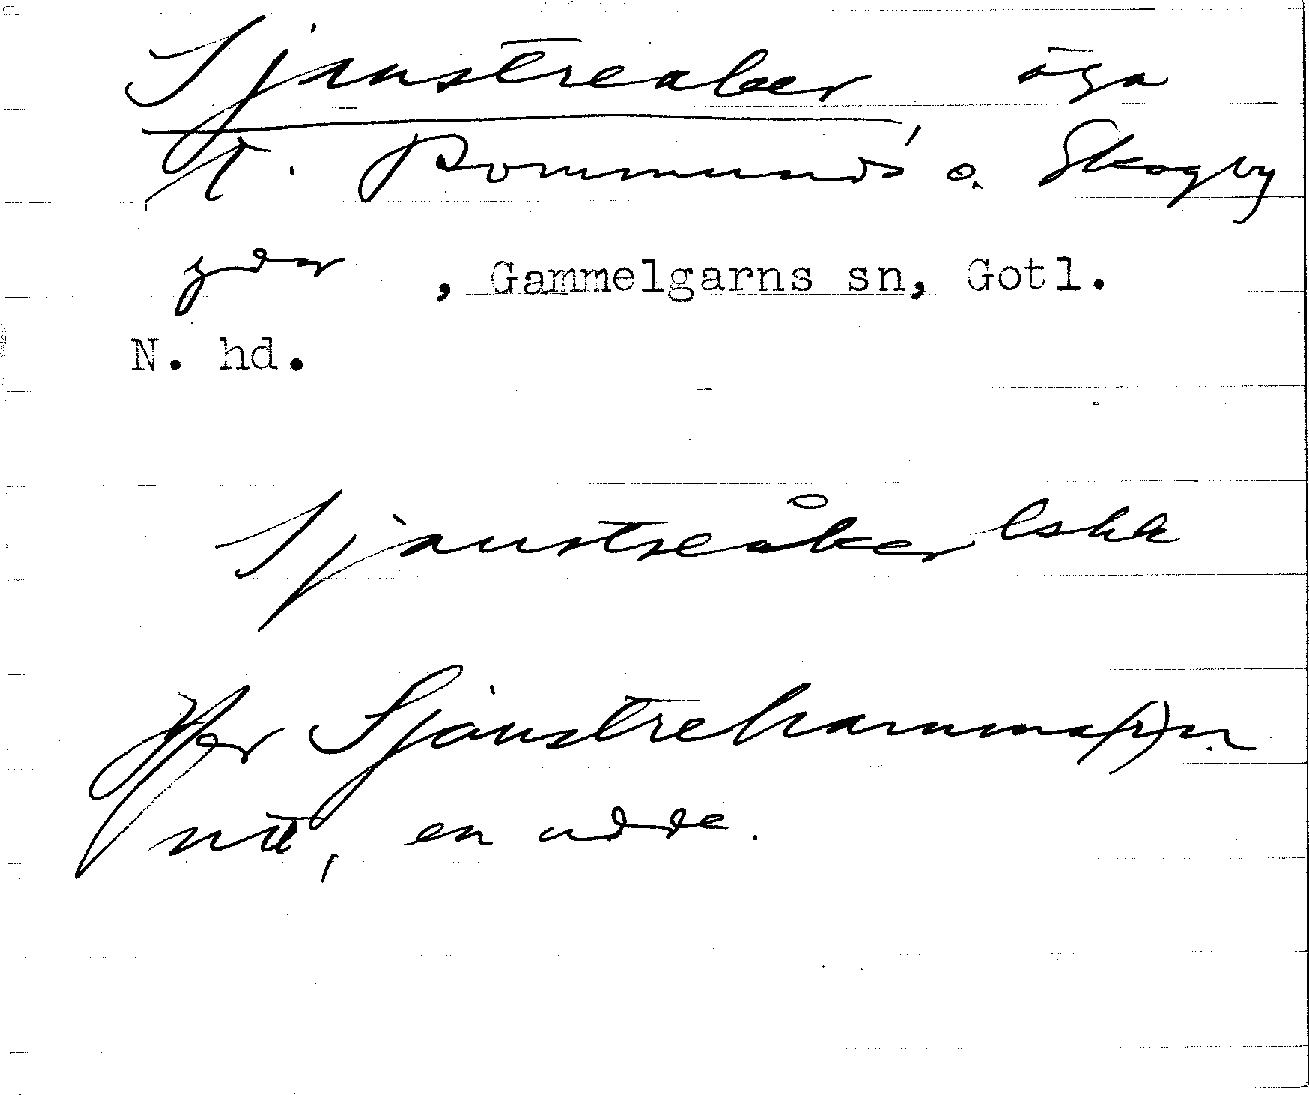 Sjaustreaker äga
t. Rommunds o. Skogby
gdar, Gammelgarns sn, Gotl.
N. hd.
Sjaustreåker lskk
Jfr Sjaustrehamma(r)n
nu, en udde.